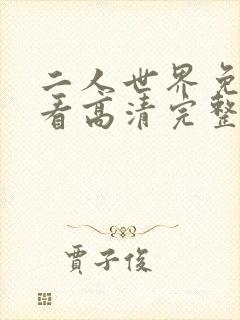 二人世界免
看高清完整
贾子俊